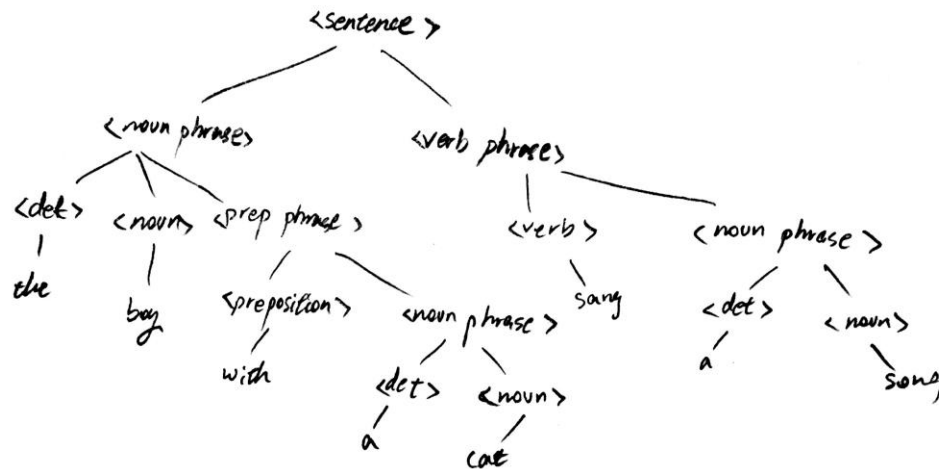 <sentence>
<noun phrase> <verb phrase>
<det> <noun> <prep phrase> <verb> <noun phrase>
the boy <preposition> <noun phrase> sang <det> <noun>
with <det> <noun> a song
a cat